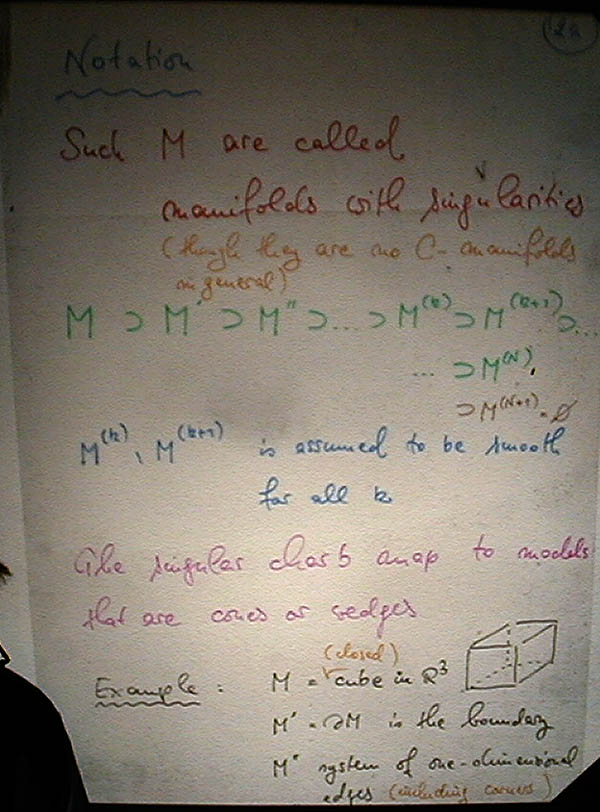 Notation
Such M are called
manifolds with singularities
(though they are no C- manifolds
in general)
M ⊃ M' ⊃ M" ⊃ ... ⊃ M^(k) ⊃ M^(k+1) ⊃ ...
... ⊃ M^(N),
⊃ M^(N+1) = ∅
M^(k) \ M^(k+1) is assumed to be smooth
for all k
The singular charts map to models
that are cones or wedges
(closed)
Example : M = cube in R^3
M' = ∂M is the boundary
M" system of one-dimensional
edges (including corners)